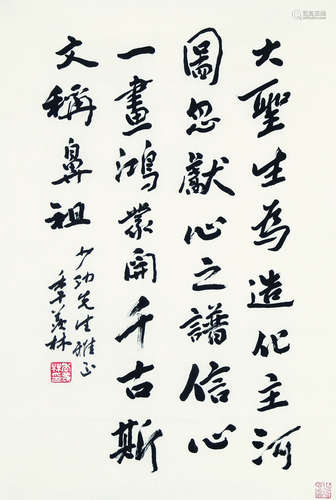 大聖生為造化主河
圖忽獻心之譜信心
一畫鴻業開千古斯
文稱鼻祖
先生雅正
季羨林